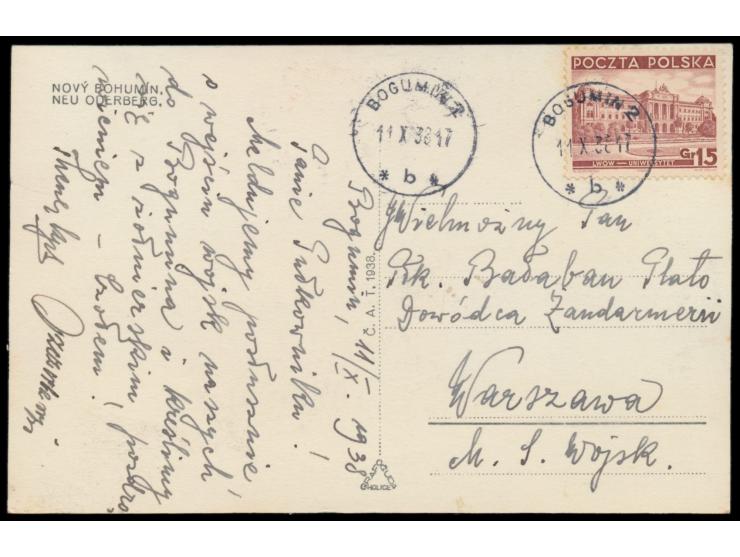 NOVÝ BOHUMÍN.
NEU ODERBERG.
BOGUMIN 2
11 X 38 17
* b *
POCZTA POLSKA
LWÓW — UNIWERSYTET
Gr 15
BOGUMIN 2
11 X 38 17
* b *
Bogumin, 11/X. 1938
Panie Pułkowniku!
Meldujemy posłusznie
o wejściu wojsk naszych
do Bogumina i kreślimy
się z żołnierskim pozdro-
wieniem – Czołem!
Č. A. T. 1938.
GRAFO
HOLICE
Wielmożny Pan
Płk. Bałaban Plato
Dowódca Żandarmerii
Warszawa
M. S. Wojsk.